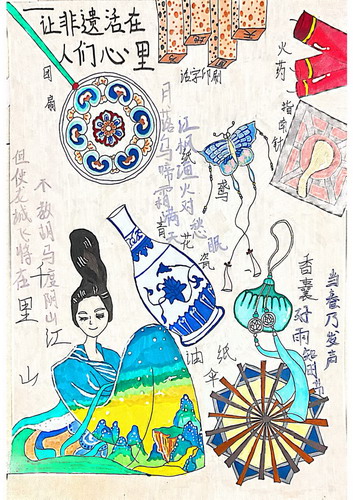 让非遗活在
人们心里
团扇
活字印刷
火药
指南针
纸鸢
月落乌啼霜满天
江枫渔火对愁眠
青花瓷
但使龙城飞将在
不教胡马度阴山
千里江山
香囊
好雨知时节
当春乃发声
油纸伞